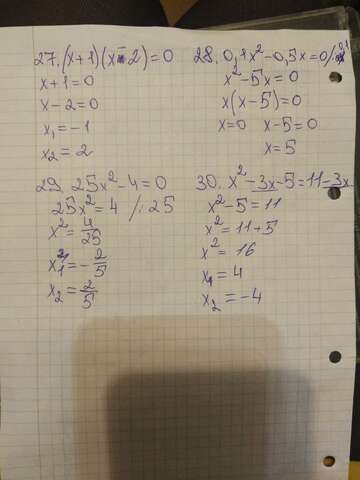 27. (x+1)(x-2)=0
x+1=0
x-2=0
x₁=-1
x₂=2
28. 0,1x²-0,5x=0/:
x²-5x=0
x(x-5)=0
x=0 x-5=0
x=5
29. 25x²-4=0
25x²=4 /:25
x²=4/25
x₁=-2/5
x₂=2/5
30. x²-3x-5=11-3x
x²-5=11
x²=11+5
x²=16
x₁=4
x₂=-4